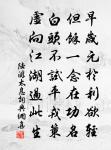 早歲元於利欲輕
但餘一念在功名
白頭不試平戎策
虛向江湖過此生
陸游太息詞典網